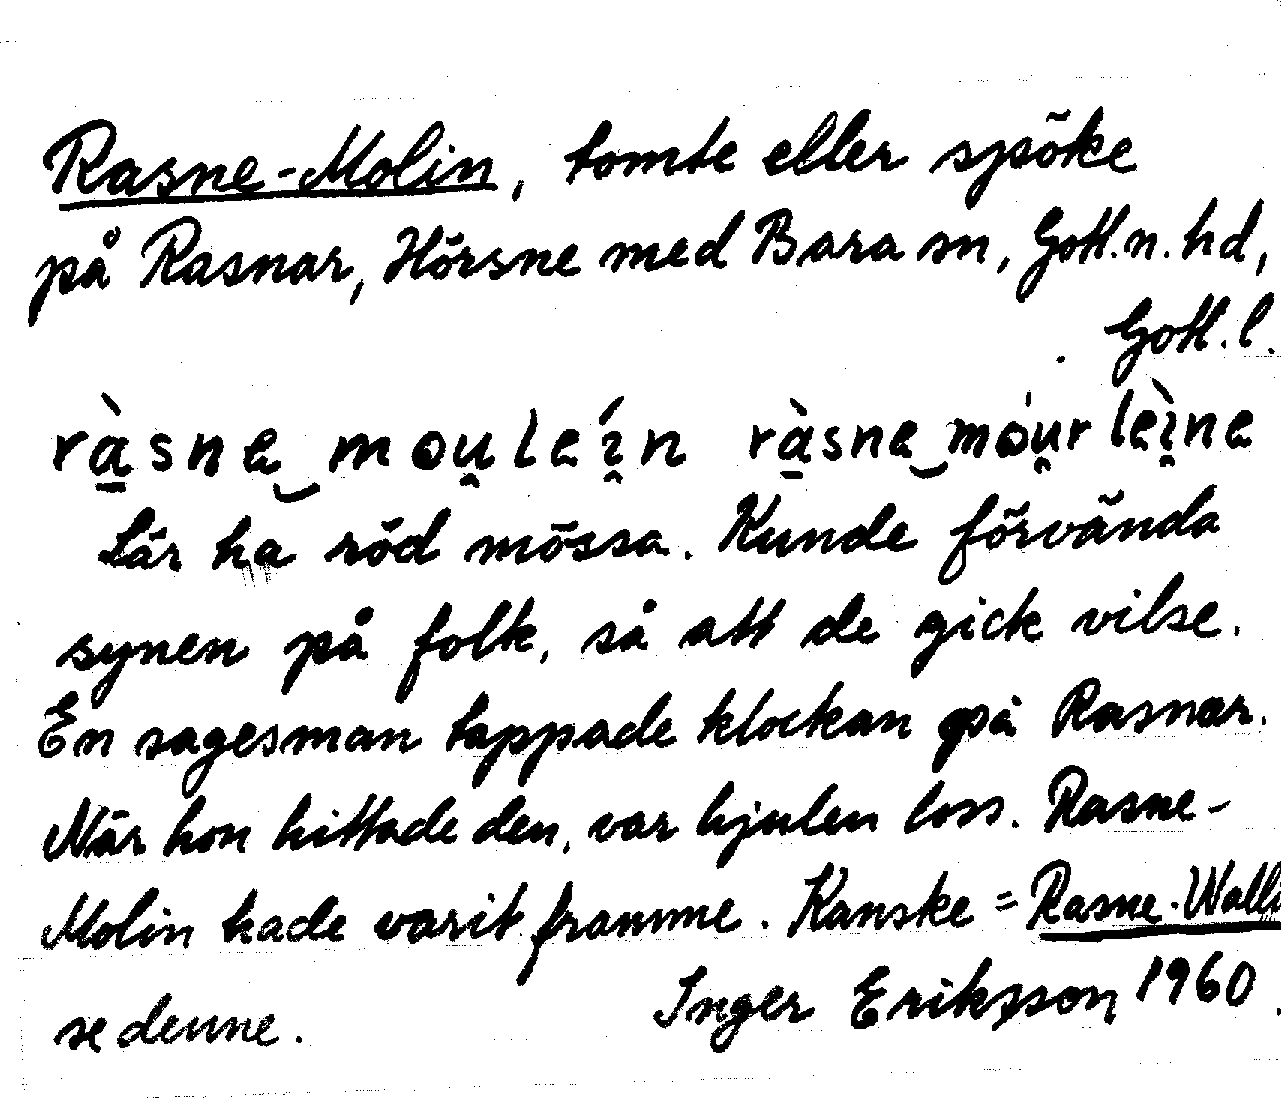 Rasne-Molin, tomte eller spöke
på Rasnar, Hörsne med Bara sn, Gotl. n. hd,
Gotl. l.
ràsne mouleín ràsne móurleìne
Lär ha röd mössa. Kunde förvända
synen på folk, så att de gick vilse.
En sagesman tappade klockan på Rasnar.
När hon hittade den, var hjulen loss. Rasne-
Molin hade varit framme. Kanske = Rasne-Walli
se denne. Inger Eriksson 1960.